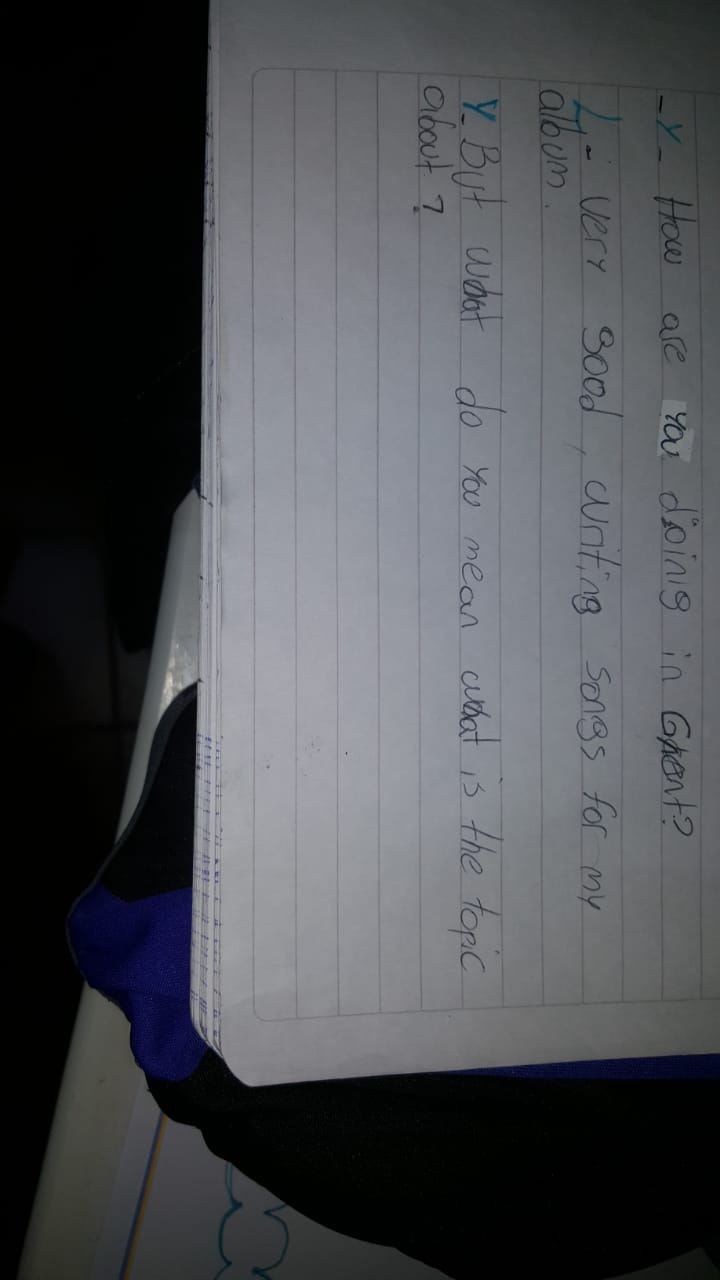 -Y- How are you doing in Ghent?
L- Very good, writing songs for my
album.
Y- But what do you mean what is the topic
about?